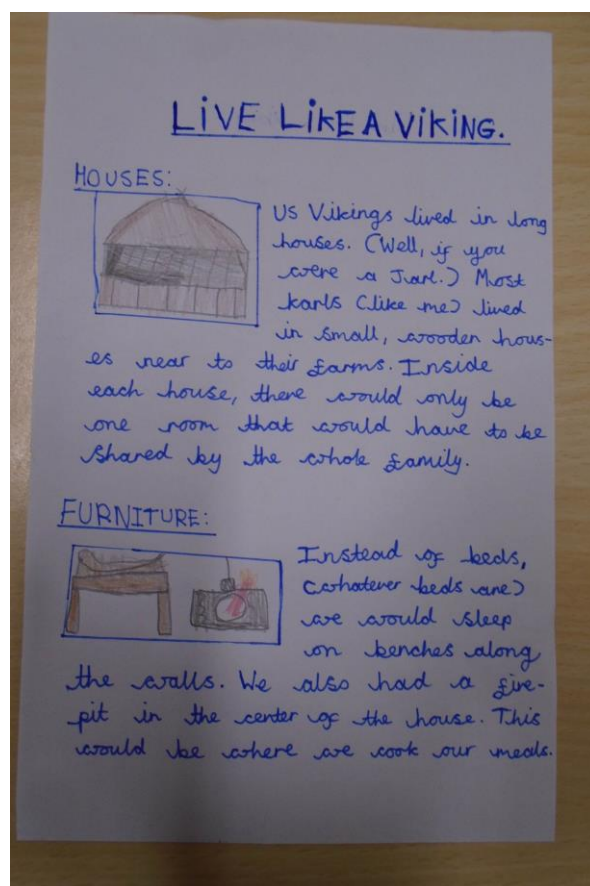 LiVE LiKE A ViKiNG.
HOUSES:
Us Vikings lived in long
houses. (Well, if you
were a Jarl.) Most
karls (like me) lived
in small, wooden hous-
es near to their farms. Inside
each house, there would only be
one room that would have to be
shared by the whole family.
FURNITURE:
Instead of beds,
(whatever beds are)
we would sleep
on benches along
the walls. We also had a fire-
pit in the center of the house. This
would be where we cook our meals.